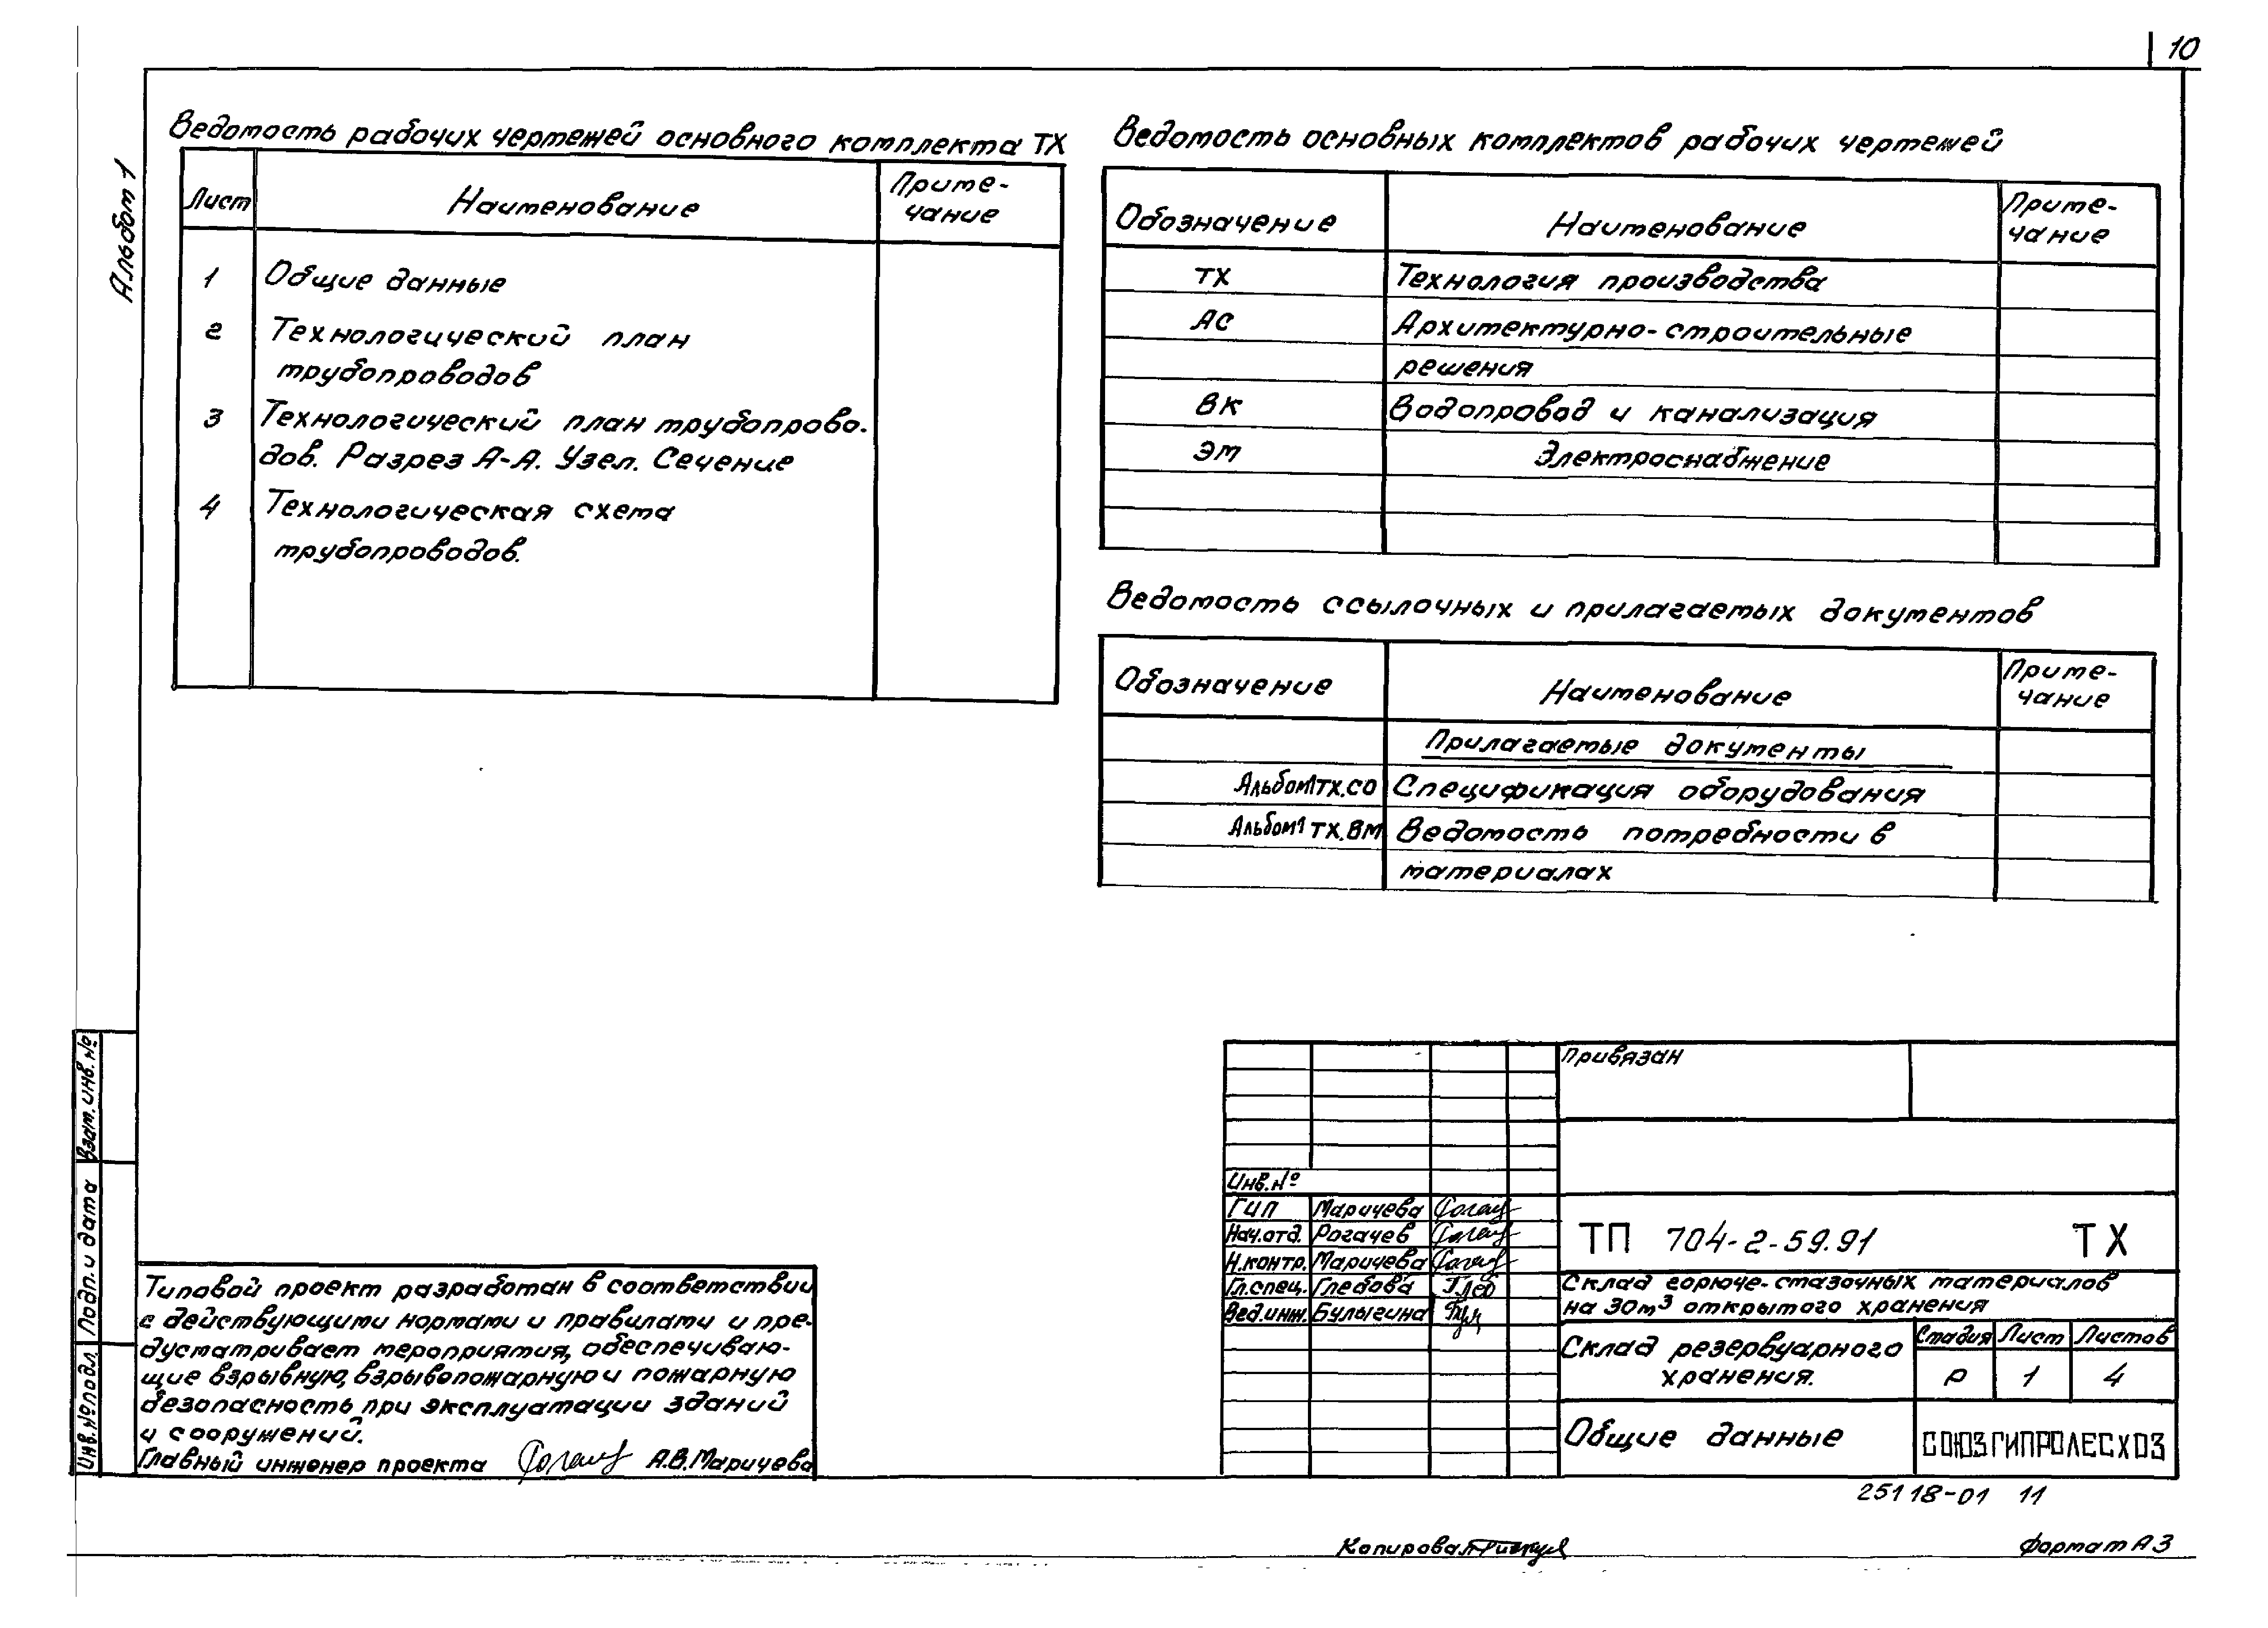 10
Альбом 1
Ведомость рабочих чертежей основного комплекта ТХ
Лист Наименование Приме-
чание
1 Общие данные
2 Технологический план
трубопроводов
3 Технологический план трубопрово-
дов. Разрез А-А. Узел. Сечение
4 Технологическая схема
трубопроводов.
Ведомость основных комплектов рабочих чертежей
Обозначение Наименование Приме-
чание
ТХ Технология производства
АС Архитектурно-строительные
решения
ВК Водопровод и канализация
ЭМ Электроснабжение
Ведомость ссылочных и прилагаемых документов
Обозначение Наименование Приме-
чание
Прилагаемые документы
Альбом1 ТХ.СО Спецификация оборудования
Альбом1 ТХ.ВМ Ведомость потребности в
материалах
Взам. инв. №
Подп. и дата
Инв. № подл.
Типовой проект разработан в соответствии
с действующими нормами и правилами и пре-
дусматривает мероприятия, обеспечиваю-
щие взрывную, взрывопожарную и пожарную
безопасность при эксплуатации зданий
и сооружений.
Главный инженер проекта А.В.Маричева
Привязан
Инв. №
ГИП Маричева
Нач.отд. Рогачев
Н.контр. Маричева
Гл.спец. Глебова
Вед.инж. Булыгина
ТП 704-2-59.91 ТХ
Склад горюче-смазочных материалов
на 30м³ открытого хранения
Склад резервуарного
хранения.
Стадия Лист Листов
Р 1 4
Общие данные
СОЮЗГИПРОЛЕСХОЗ
25118-01 11
Копировал
Формат А3